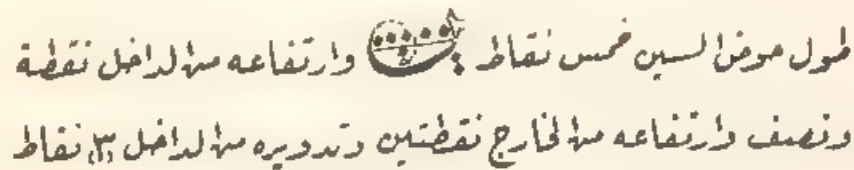 طول حوض السين خمس نقاط وارتفاعه من الداخل نقطة
ونصف وارتفاعه من الخارج نقطتين وتدويره من الداخل ٣ نقاط